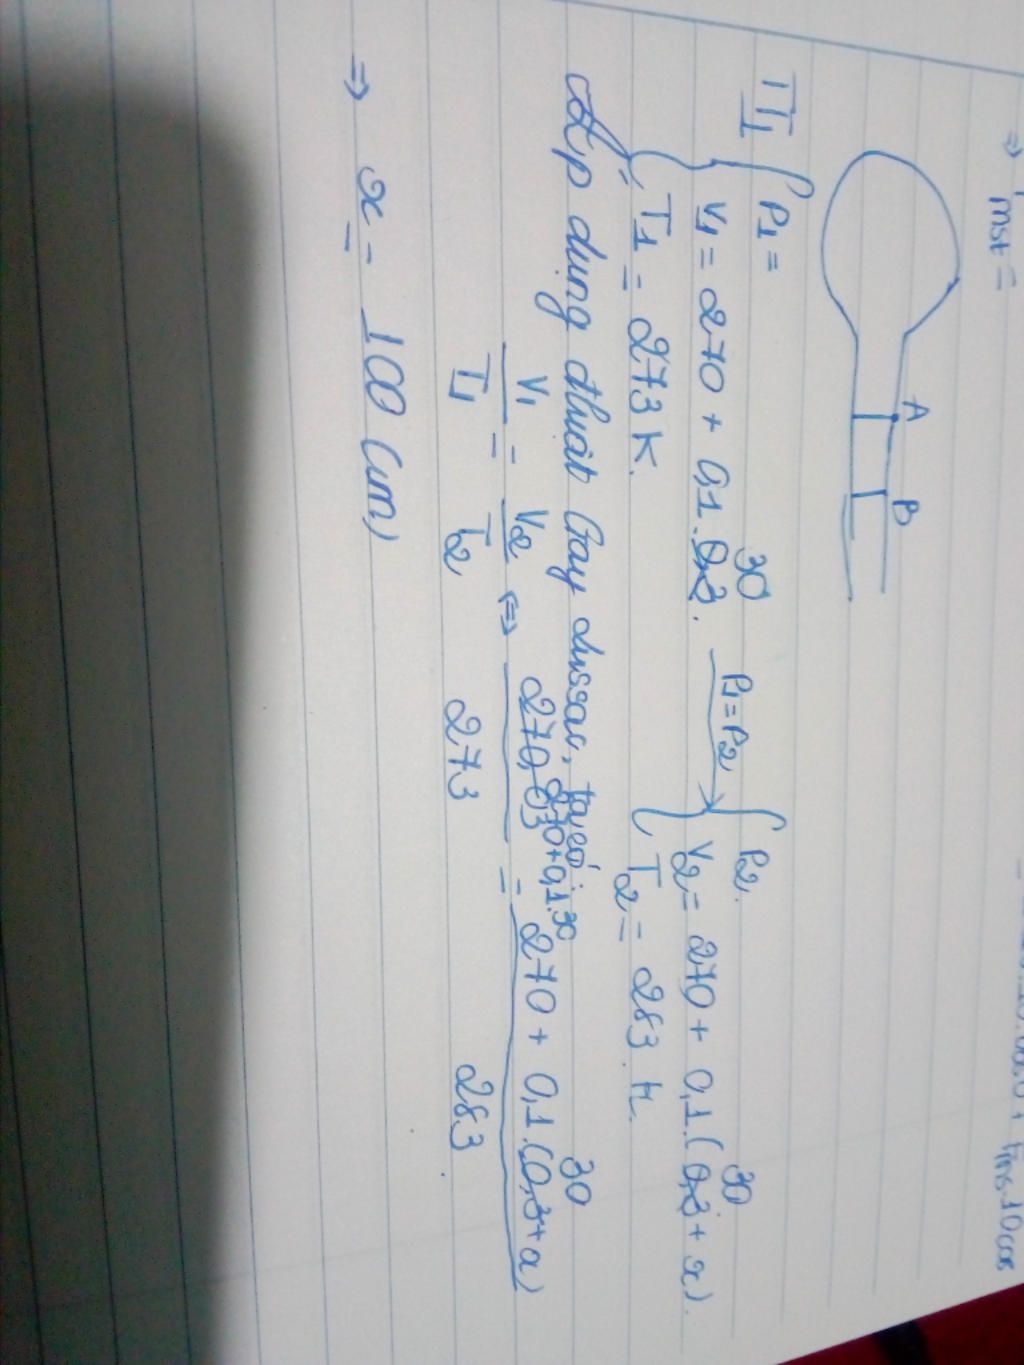 ⇒ Fmst =
A B
TT1 { P1 =
V1 = 270 + 0,1. 30. P1 = P2 → { P2.
V2 = 270 + 0,1.(30 + x).
T1 = 273 K. T2 = 283 K.
Áp dụng định luật Gay lussac, ta có:
V1/T1 = V2/T2 ⇔ (270 + 0,1.30)/273 = (270 + 0,1.(30 + x))/283
⇒ x = 100 (cm)